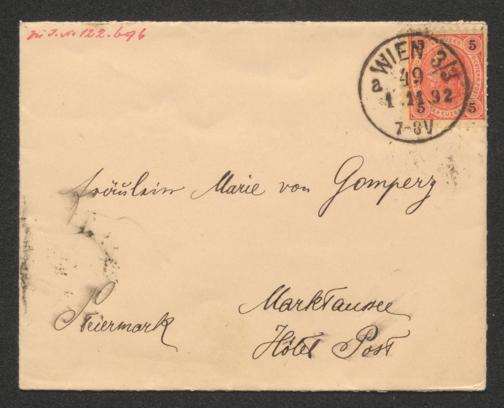 Zu I. N. 122.696
WIEN 3/3
a 49
1.11.92
7-8V
5 5
5 5
Fräulein Marie von Gomperz
Marktaussee
Steiermark
Hôtel Post